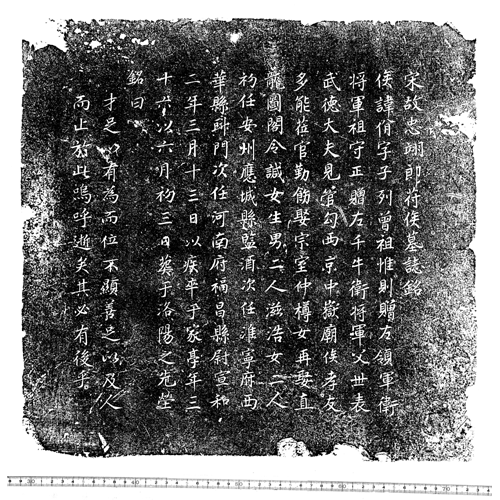 宋故忠翊郎符侯墓誌銘
侯諱佾字子列曾祖惟則贈左領軍衛
將軍祖守正贈左千牛衛將軍父世表
武德大夫見管勾西京中嶽廟侯孝友
多能莅官勤飭娶宗室仲樽女再娶直
龍圖閣令諴女生男二人滋浩女二人
初任安州應城縣監酒次任淮寧府西
華縣䤲門次任河南府福昌縣尉宣和
二年三月十三日以疾卒于家享年三
十六以六月初三日葬于洛陽之先塋
銘曰
才足以有為而位不顯善足以及人
而止於此嗚呼逝矣其必有後乎